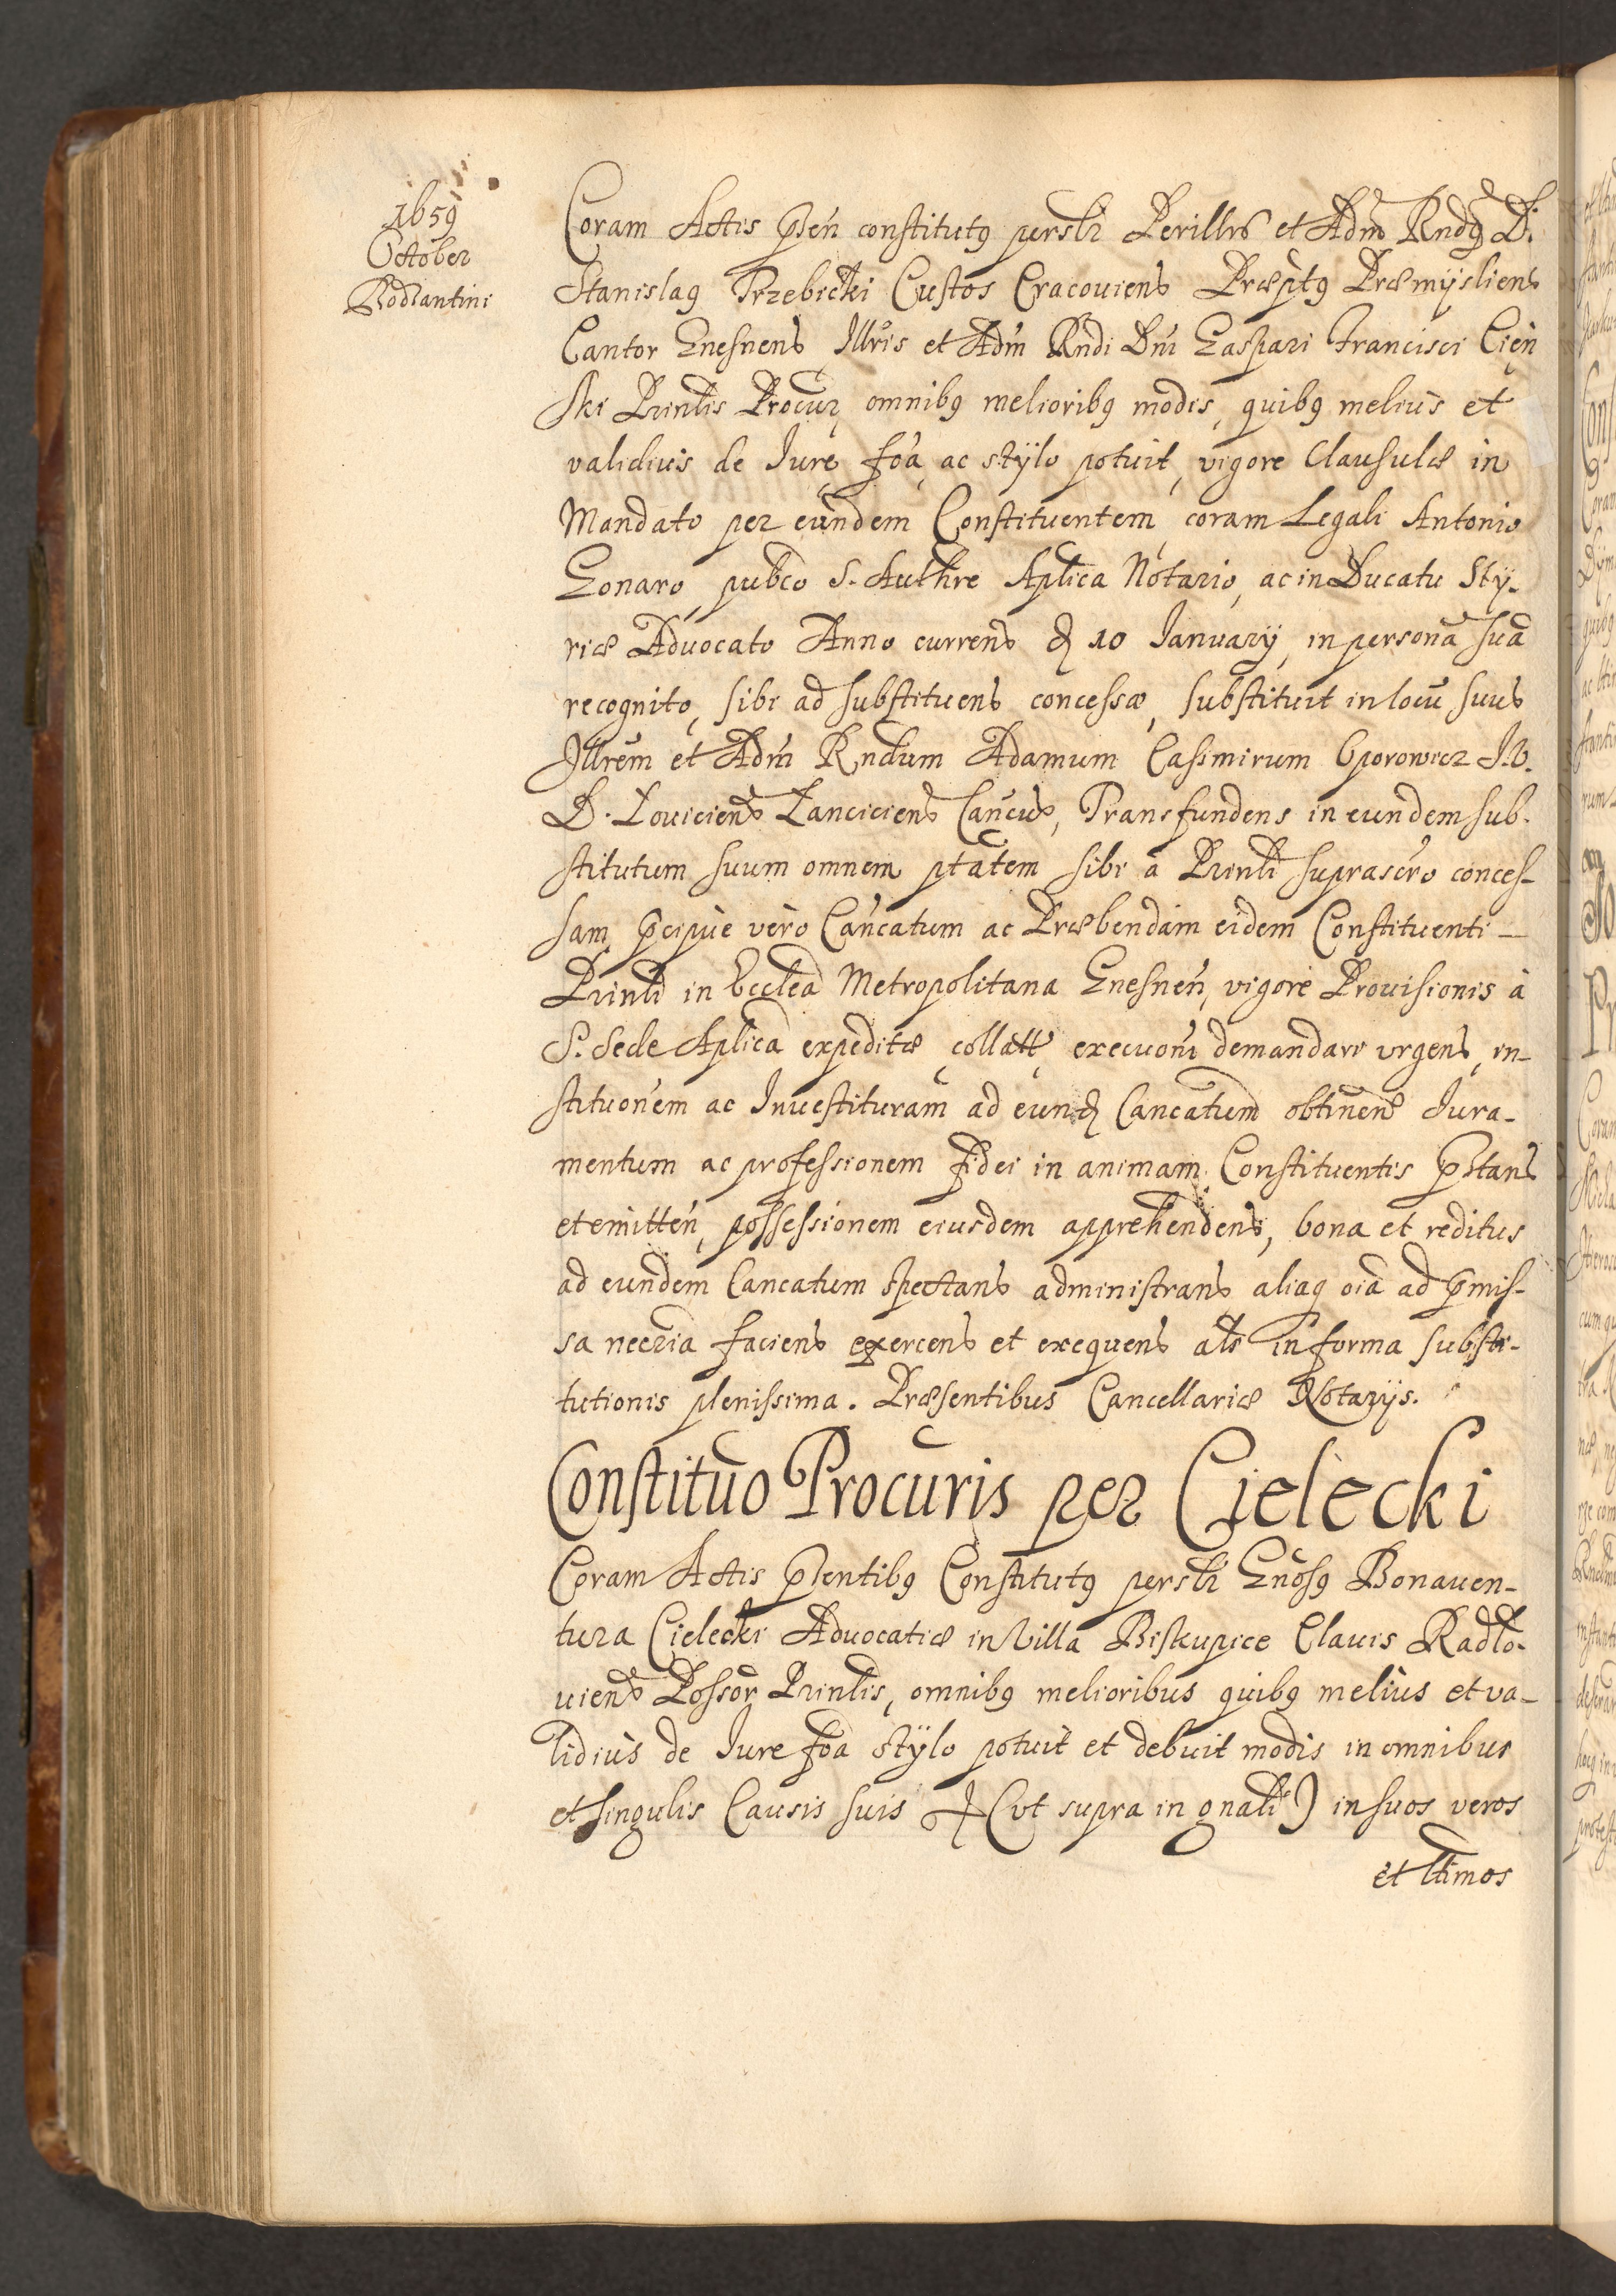 1659
October
Bodzantini
Coram Actis pñ constitutq persłr Perillris et Adm Rndq D.
Stanislaq Trzebicki Custos Cracoviens Præptq Præmysliens
Cantor Gnesnens, Illris et Adm Rndi Dni Gaspari Francisci Cień
ski Prinlis Procur, omnibq melioribq modis, quibq meliùs et
validiùs de Iure, foa, ac stÿlo potuit, vigore Clausulæ in
Mandato per eundem Constituentem, coram Legali Antonio
Gonaro, pubco S. Authre Aplica Notario, ac in Ducatu Stÿ-
riæ Advocato Anno currens d 10 Ianuarÿ, in personã suã
recognito, sibi ad substituens concessæ, substituit in locũ suus
Illrem et Adm Rndum Adamum Casimirum Oporowicz I.V.
D. Loviciens Lanciciens Cancus, Transfundens in eundem sub-
stitutum suum omnem ptatem sibi à Prinli suprascro conces-
sam, pcipùe vèro Cancatum ac Præbendam eidem Constituenti
Prinli in Ecclea Metropolitana Gnesneń, vigore Provisionis à
S. Sede Aplica expeditæ, collatt, execuoni demandare urgens, in-
stituonem ac Investituram ad eund Cancatum obtinens Iura-
mentum ac professionem fidei in animam Constituentis pstans
et emitten, possessionem eiusdem apprehendens, bona et reditus
ad eundem Cancatum spectans administrans, aliaq oia ad pmis-
sa necria faciens exercens et exequens als in forma substi-
tutionis plenissima. Præsentibus Cancellariæ Notarÿs.
Constituo Procuris per Cielecki
Coram Actis pñentibq Constitutq persłr Gnosq Bonaven-
tura Cielecki Advocatiæ in Villa Biskupice Clavis Radło-
viens Possor Prinlis, omnibq melioribus quibq meliùs et va-
lidiùs de Iure foa stÿlo potuit et debuit modis in omnibus
et singulis Causis suis (vt supra in gnali) in suos veros
et ltimos